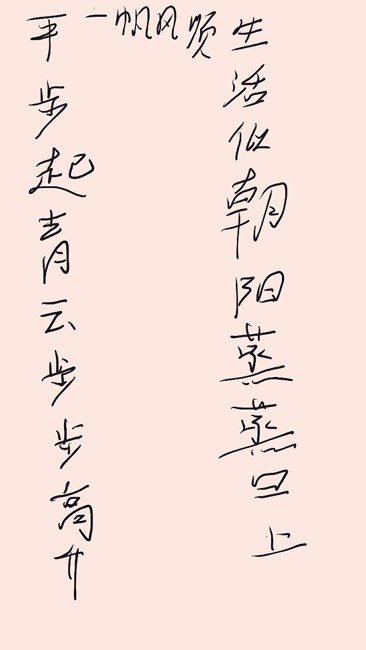 一帆风顺
生活似朝阳蒸蒸日上
平步起青云步步高升